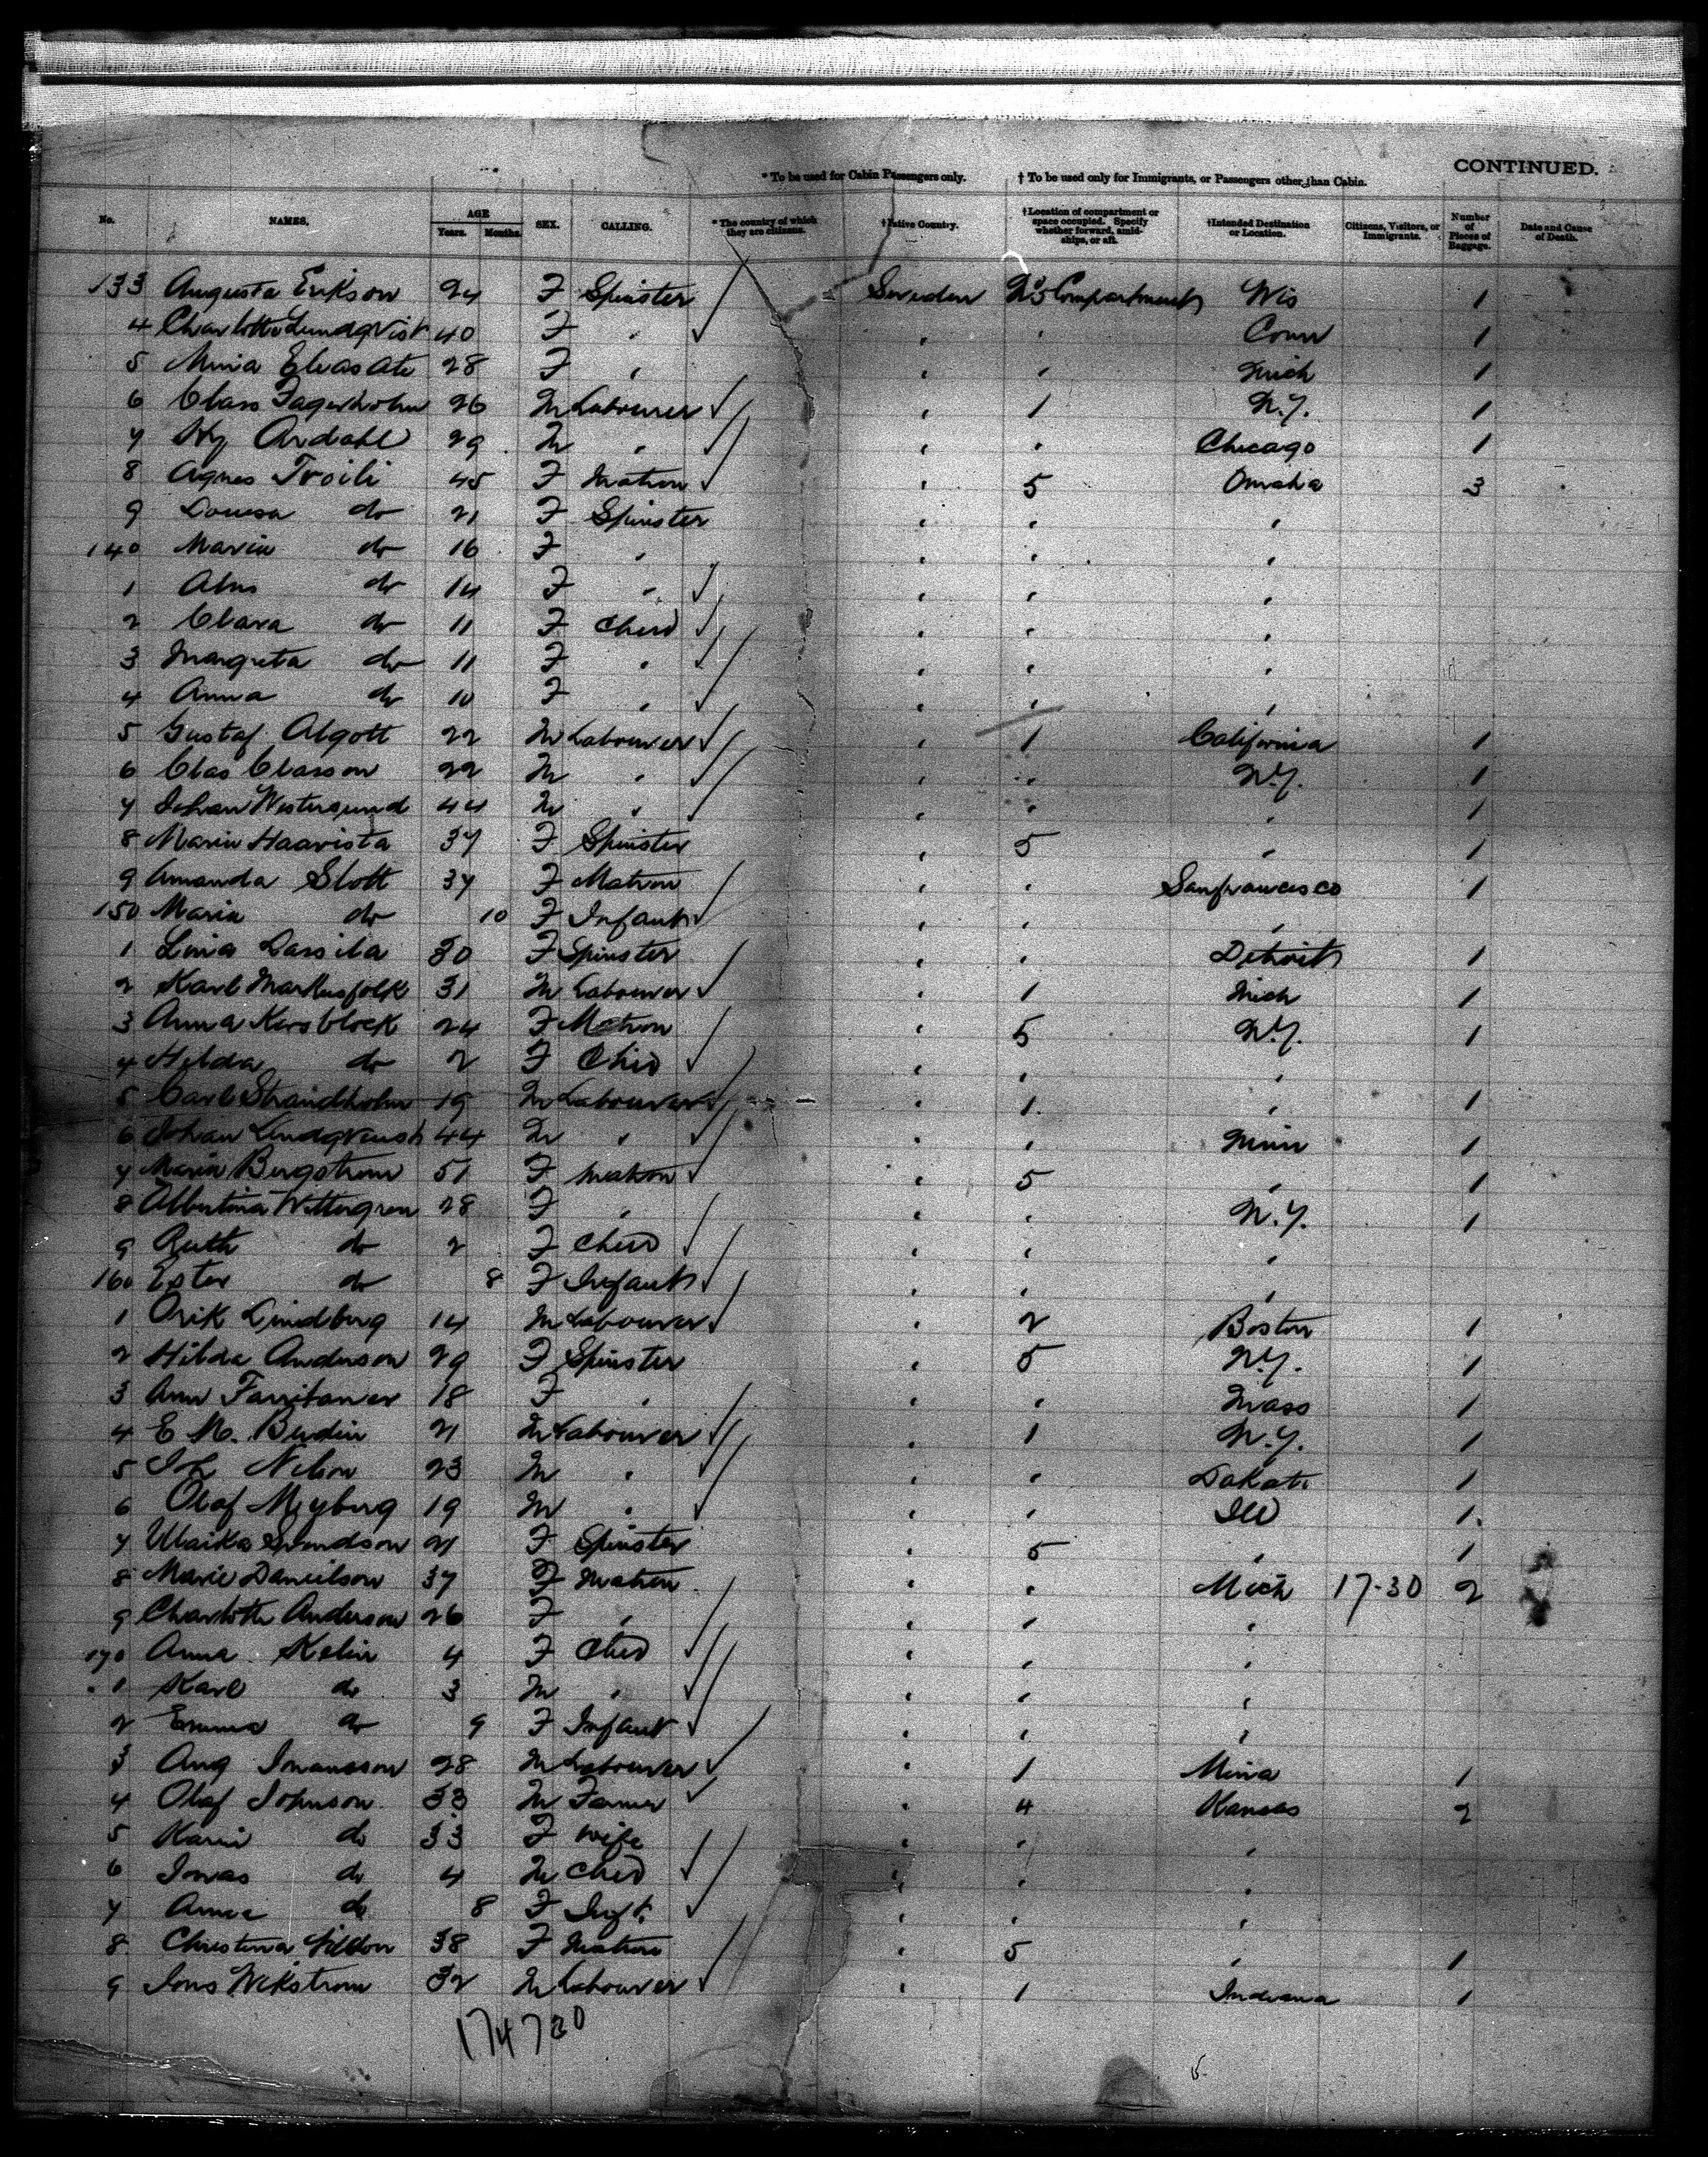 CONTINUED.
* To be used for Cabin Passengers only. † To be used only for Immigrants, or Passengers other than Cabin.
No. NAMES. AGE Years. Months. SEX. CALLING. * The country of which they are citizens. † Native Country. † Location of compartment or space occupied. Specify whether forward, amidships, or aft. † Intended Destination or Location. Citizens, Visitors, or Immigrants. Number of Pieces of Baggage. Date and Cause of Death.
133 Augusta Erikson 24 F Spinster Sweden Compartment Wis 1
4 Charlotte Lundqvist 40 F " " " Conn 1
5 28 F " " " Mich 1
6 Clas Fagerholm 26 M Labourer " 1 N.Y. 1
7 Hy Ardahl 29 M " " " Chicago 1
8 Agnes Troili 45 F Matron " 5 Omaha 3
9 Louisa do 21 F Spinster " " "
140 Maria do 16 F " " " "
1 do 14 F " " " "
2 Clara do 11 F Child " " "
3 Margreta do 11 F " " " "
4 Anna do 10 F " " " "
5 Gustaf Algott 22 M Labourer " 1 California 1
6 Clas Classon 22 M " " " N.Y. 1
7 Johan Westersund 44 M " " " " 1
8 Maria Haavista 37 F Spinster " 5 " 1
9 Amanda Slott 37 F Matron " " Sanfrancisco 1
150 Maria do 10 F Infant " " "
1 Lina Lassila 30 F Spinster " " Detroit 1
2 Karl Markusfolk 31 M Labourer " 1 Mich 1
3 Anna Korsblock 24 F Matron " 5 N.Y. 1
4 Hilda do 2 F Child " " "
5 Carl Strandholm 19 M Labourer " 1 " 1
6 Johan Lindqvist 44 M " " " Minn 1
7 Maria Bergstrom 51 F Matron " 5 " 1
8 Albertina Wittergren 28 F " " " N.Y. 1
9 Ruth do 2 F Child " " "
160 Ester do 8 F Infant " " "
1 Erik Lindberg 14 M Labourer " 2 Boston 1
2 Hilda Anderson 29 F Spinster " 5 N.Y. 1
3 Ann 18 F " " " Mass 1
4 E M. Berdin 21 M Labourer " 1 N.Y. 1
5 Joh Nelson 23 M " " " Dakota 1
6 Olaf Myberg 19 M " " " Ill 1
7 Ulrika 21 F Spinster " 5 " 1
8 Marie Danielson 37 F Matron " " Mich 17-30 2
9 Charlotte Anderson 26 F " " " "
170 Anna Kelin 4 F Child " " "
1 Karl do 3 M " " " "
2 Emma do 9 F Infant " " "
3 Aug 28 M Labourer " 1 Minn 1
4 Olaf Johnson 33 M Farmer " 4 Kansas 2
5 Karin do 33 F Wife " " "
6 Jonas do 4 M Child " " "
7 Annie do 8 F Inft. " " "
8 Christina 38 F Matron " 5 " 1
9 Jons Wikstrom 32 M Labourer " 1 Indiana 1
174730